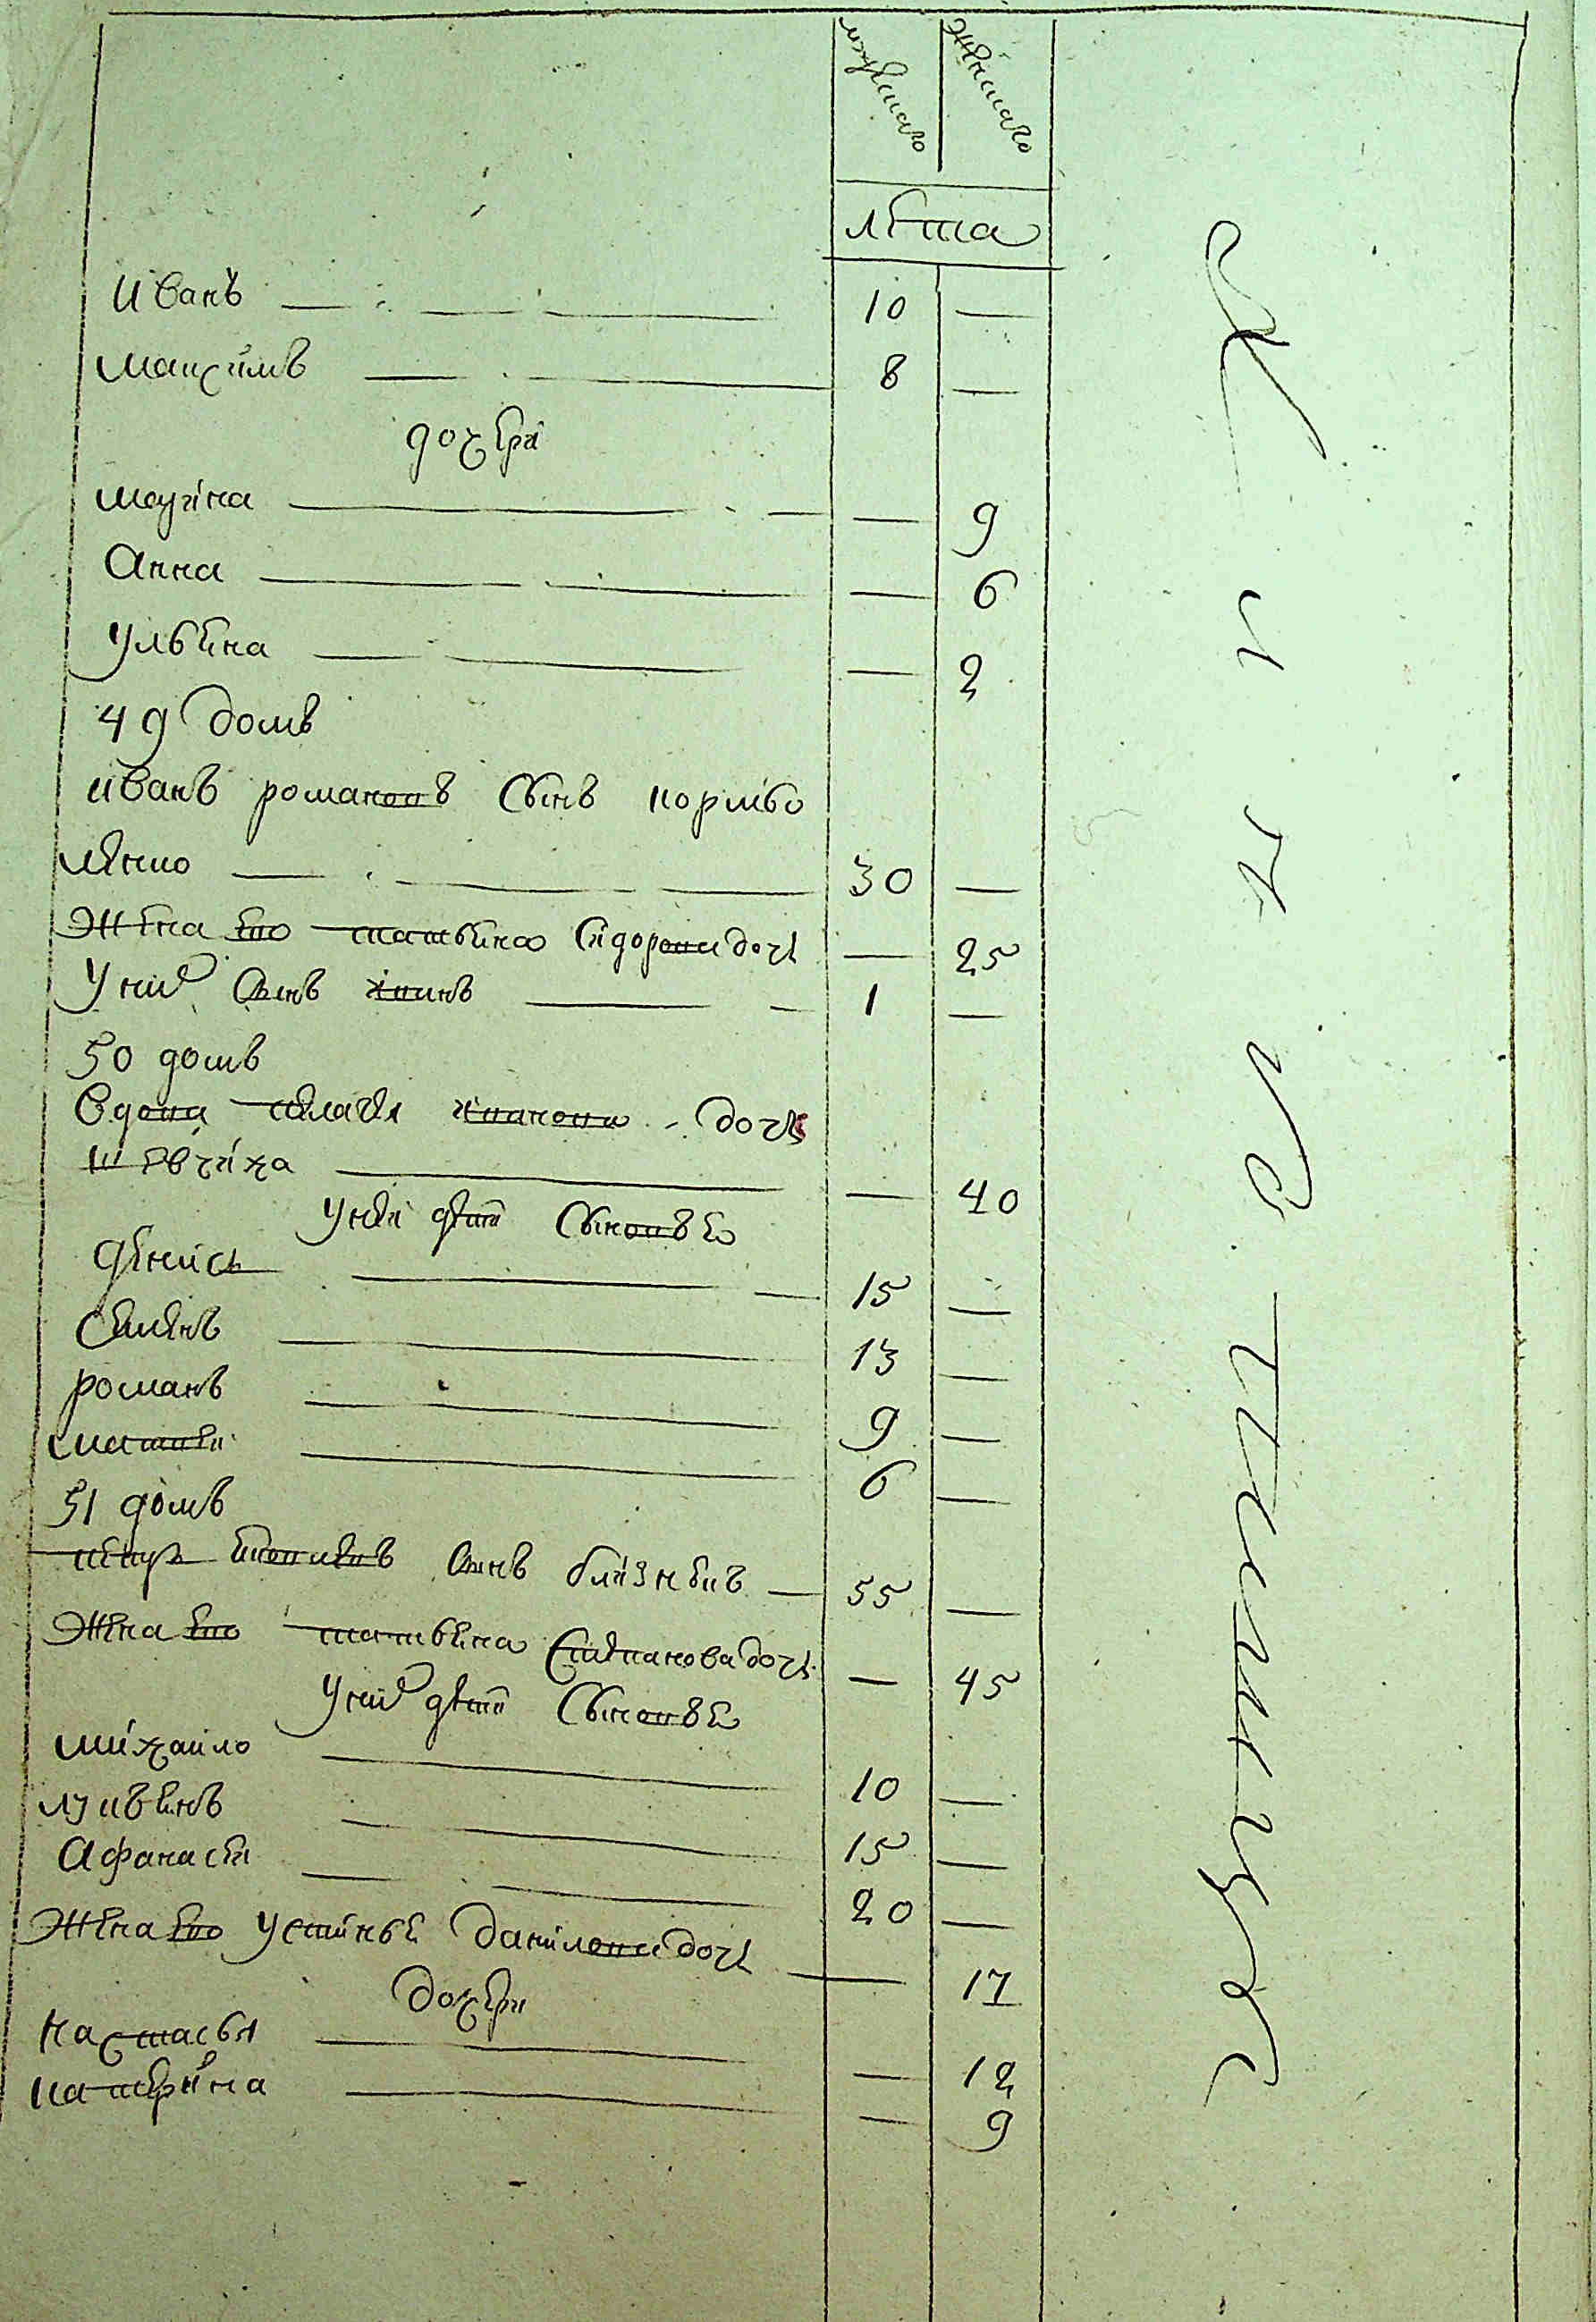 мужеска женска
лѣта
Иванъ 10 —
максимъ 8 —
дочери
марина — 9
Анна — 6
ульяна — 2
49 домъ
иванъ романовъ сынъ
30 —
жена его татьяна сидорова дочь — 25
у нихъ сынъ 1 —
50 домъ
вдова пелагея иванова дочь
шевчиха — 40
у неи дети сыновья
денисъ 15 —
семенъ 13 —
романъ 9 —
матвеи 6 —
51 домъ
сынъ близнецъ 55 —
жена его татьяна степанова дочь — 45
у нихъ дети сыновья
михаило 10 —
лукьянъ 15 —
Афанасеи 20 —
жена его устинья данилова дочь — 17
дочери
настасья — 12
катерина — 9